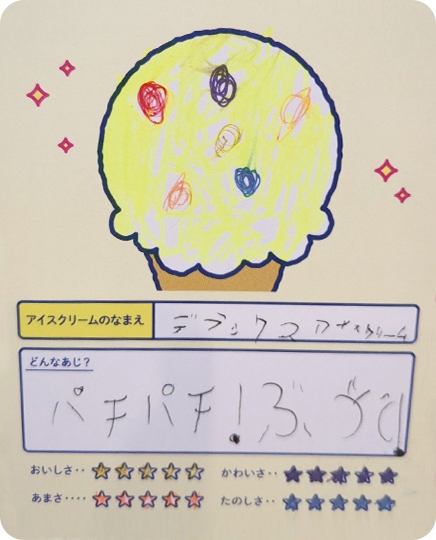 アイスクリームのなまえ
デラックスアイスクリーム
どんなあじ?
パチパチ!ぶどう
おいしさ‥ ★★★★★ かわいさ‥ ★★★★★
あまさ‥‥ ★★★★★ たのしさ‥ ★★★★★